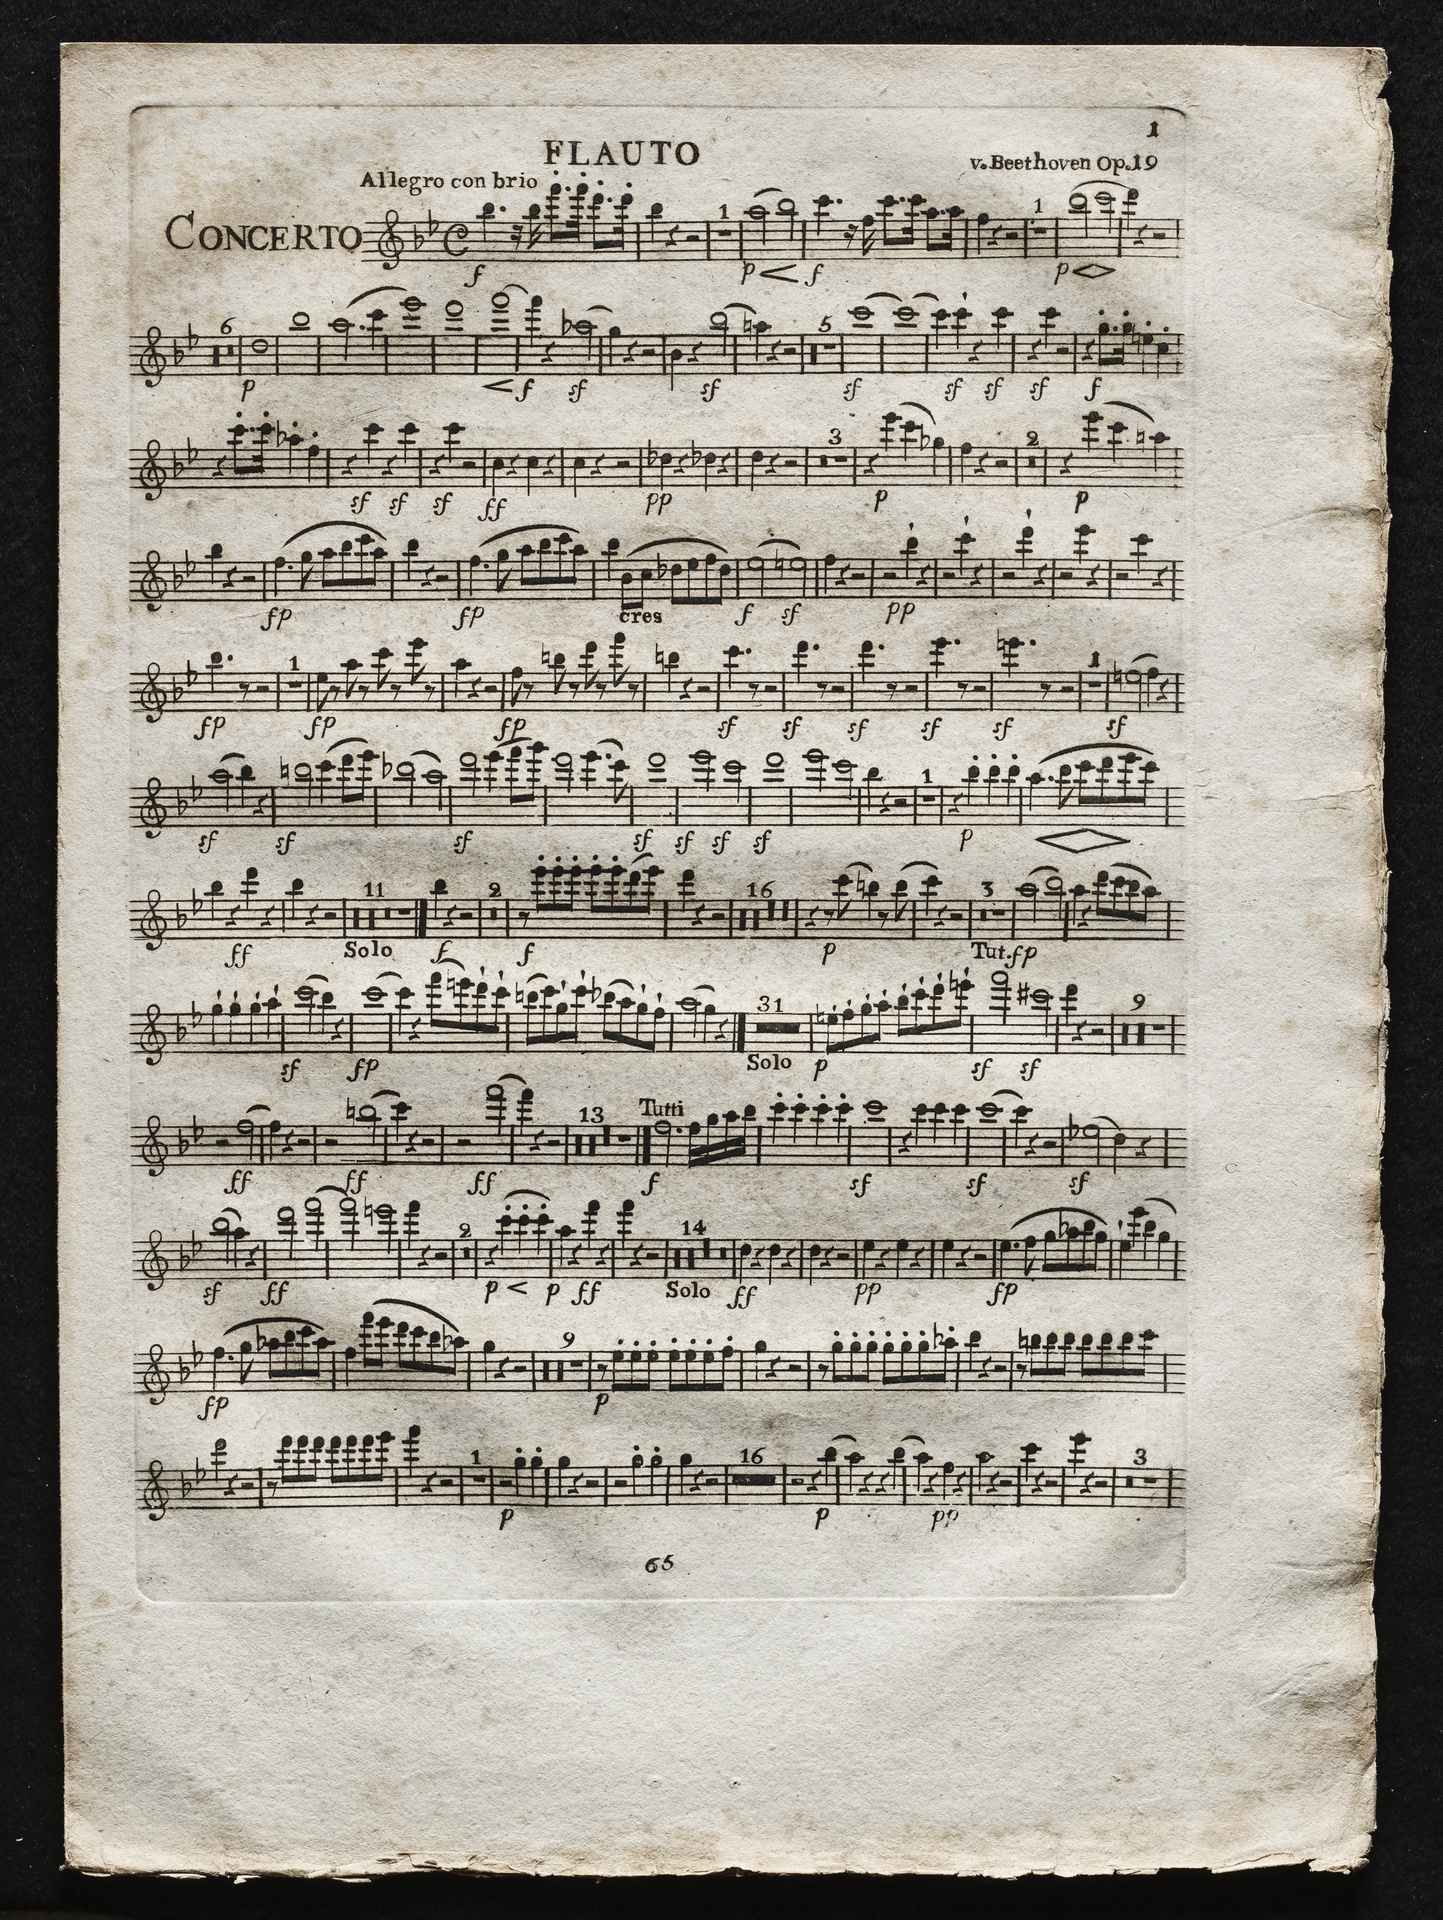 1
FLAUTO
v. Beethoven Op.19
Allegro con brio
CONCERTO
1 1
f p f p
6 5
p f sf sf sf sf sf sf f
3 2
sf sf sf ff pp p p
fp fp cres f sf pp
1 1
fp fp fp sf sf sf sf sf sf
1
sf sf sf sf sf sf sf p
11 2 16 3
ff Solo f f p Tut. fp
31 9
sf fp Solo p sf sf
13 Tutti
ff ff ff f sf sf sf
2 14
sf ff p p ff Solo ff pp fp
9
fp p
1 16 3
p p pp
65